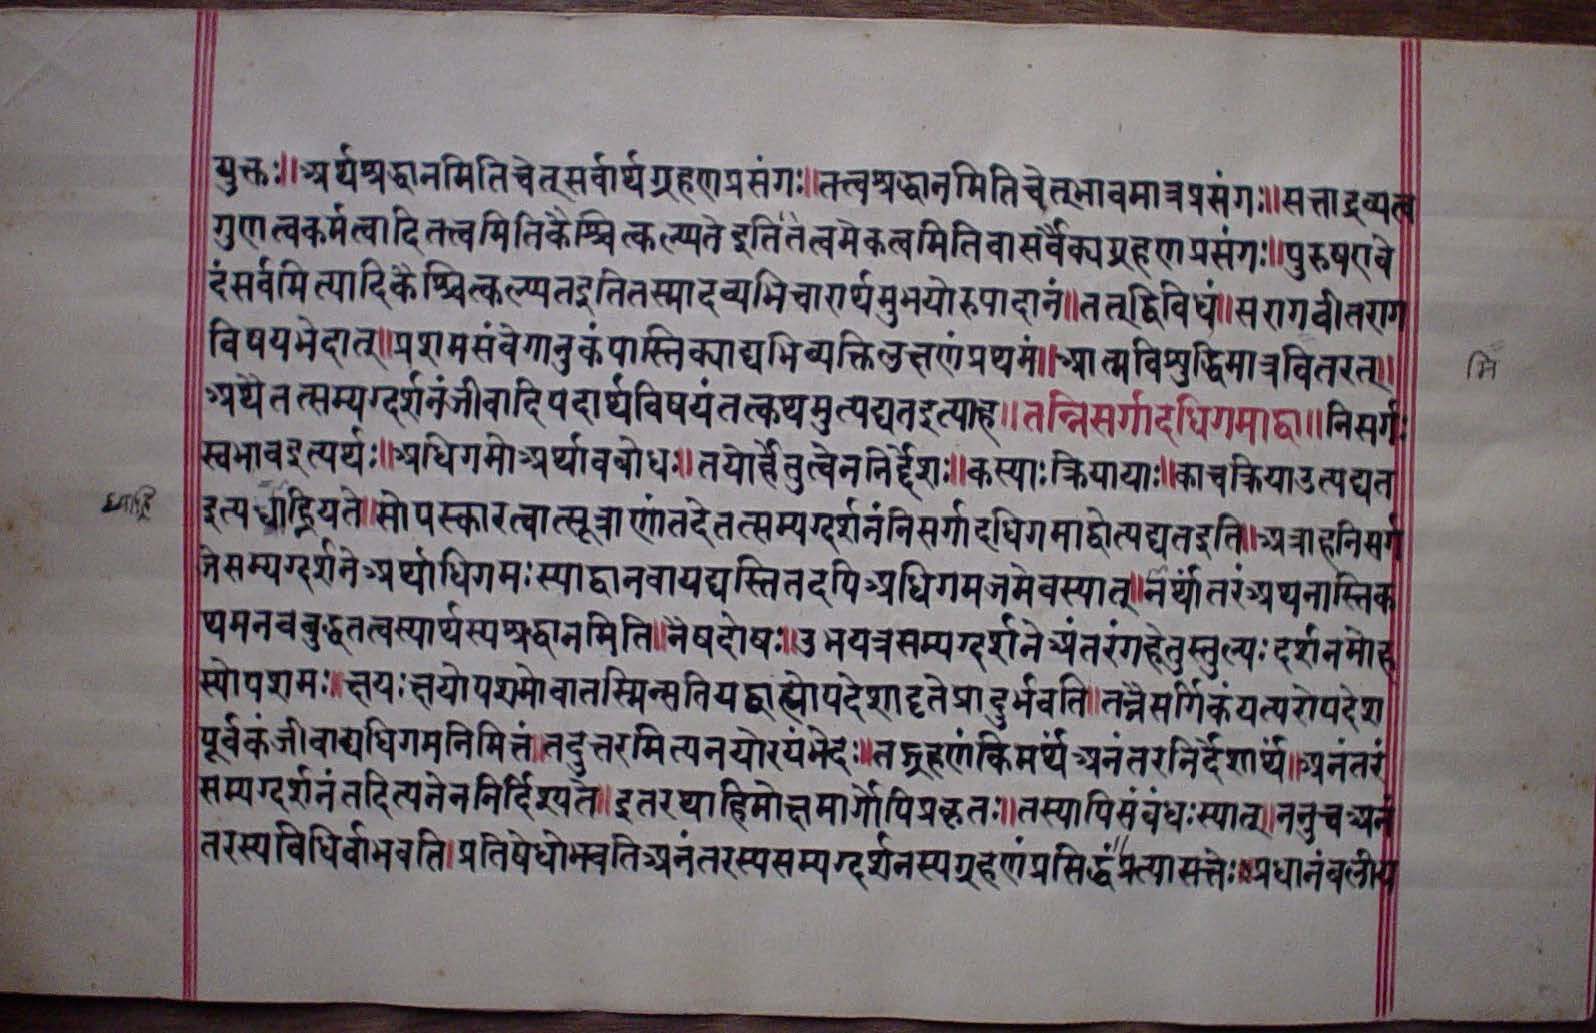 युक्तः॥अर्थश्रद्धानमितिचेत्सर्वार्थग्रहणप्रसंगः॥तत्त्वश्रद्धानमितिचेत्भावमात्रप्रसंगः॥सत्ताद्रव्यत्व
गुणत्वकर्मत्वादितत्त्वमितिकैश्चित्कल्प्यतेइतितत्वमेकत्वमितिवासर्वैक्यग्रहणप्रसंगः॥पुरुषएवे
दंसर्वमित्यादिकैश्चित्कल्प्यतइतितस्मादव्यभिचारार्थमुभयोरुपादानं॥तत्द्विविधं॥सरागवीतराग
विषयभेदात्॥प्रशमसंवेगानुकंपास्तिक्याद्यभिव्यक्तिलक्षणंप्रथमं॥आत्मविशुद्धिमात्रवितरत्॥
मि
अथैतत्सम्यग्दर्शनंजीवादिपदार्थविषयंतत्कथमुत्पद्यतइत्याह॥तन्निसर्गादधिगमाद्वा॥निसर्गः
स्वभावइत्यर्थः॥अधिगमोअर्थावबोधः॥तयोर्हेतुत्वेननिर्द्देशः॥कस्याःक्रियायाः॥काचक्रियाउत्पद्यत
इत्यध्याह्रियते॥सोपस्कारत्वात्सूत्राणांतदेतत्सम्यग्दर्शनंनिसर्गादधिगमाद्वोत्पद्यतइति॥अत्राहनिसर्ग
जेसम्यग्दर्शनेअर्थाधिगमःस्याद्वानवायद्यस्तितदपिअधिगमजमेवस्यात्॥नर्थांतरंअथनास्तिक
थमनवबुद्धतत्वस्यार्थस्यश्रद्धानमिति॥नैषदोषः॥उभयत्रसम्यग्दर्शनेअंतरंगहेतुस्तुल्यःदर्शनमोह
स्योपशमः॥क्षयःक्षयोपशमोवातस्मिन्सतियद्बाह्योपदेशादृतेप्रादुर्भवति॥तन्नैसर्गिकंयत्परोपदेश
पूर्वकंजीवाद्यधिगमनिमित्तं॥तदुत्तरमित्यनयोरयंभेदः॥तद्ग्रहणंकिमर्थंअनंतरनिर्देशार्थं॥अनंतरं
सम्यग्दर्शनंतदित्यनेननिर्दिश्यते॥इतरथाहिमोक्षमार्गोपिप्रकृतः॥तस्यापिसंबंधःस्यात्॥ननुचअनं
तरस्यविधिर्वाभवति॥प्रतिषेधोभवतिअनंतरस्यसम्यग्दर्शनस्यग्रहणंप्रसिद्धंप्रत्यासत्तेः॥प्रधानंबलीय